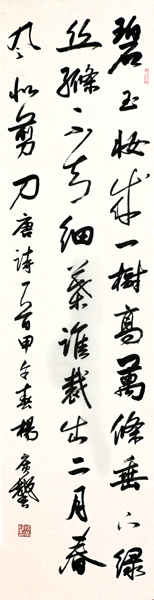 碧玉妝成一樹高萬條垂下綠
丝絛不知細葉誰裁出二月春
風似剪刀唐詩一首甲午春楊